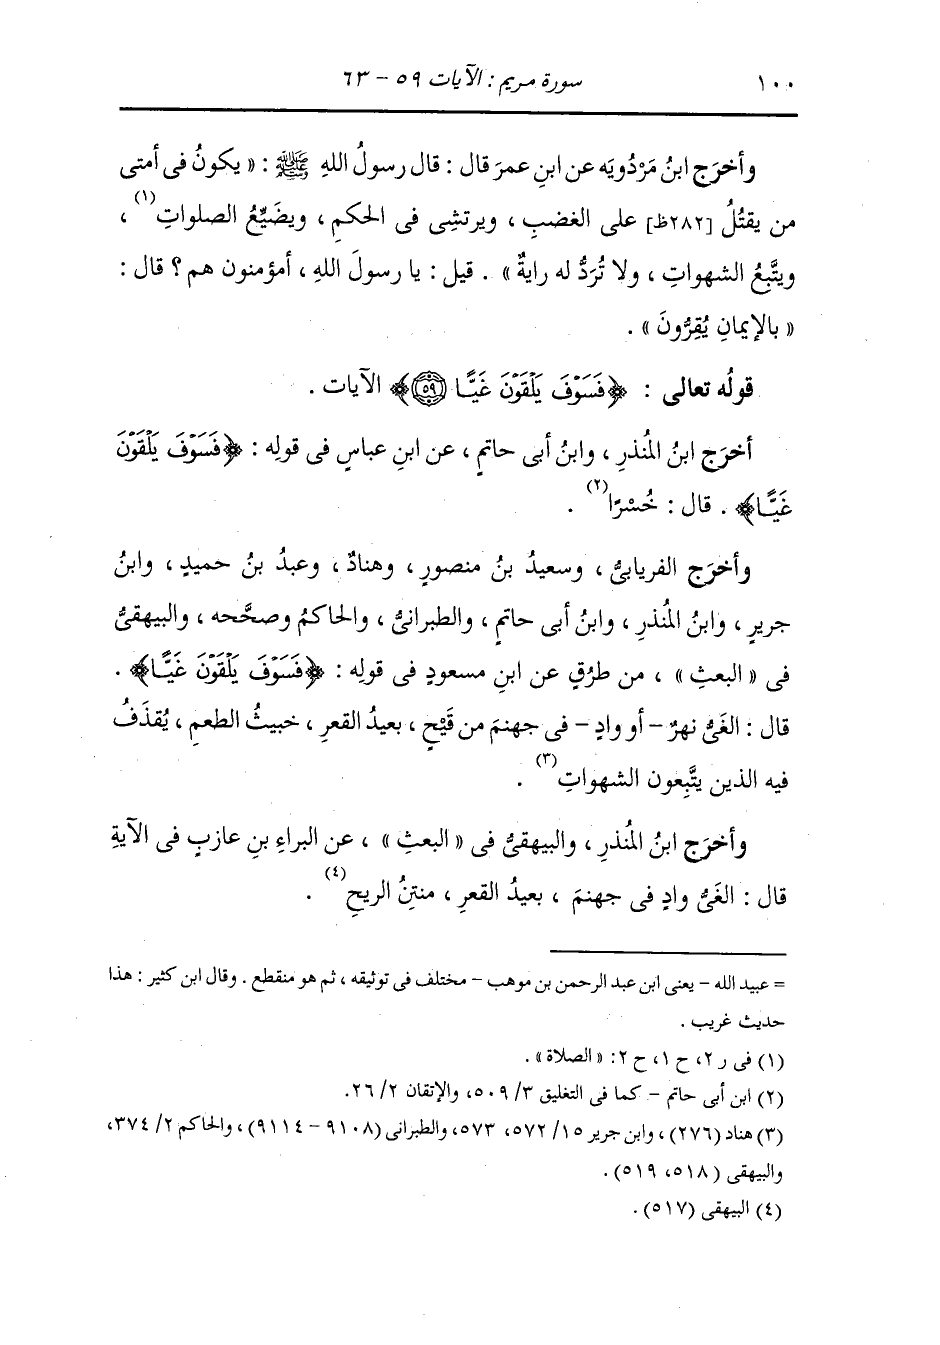 ١٠٠ سورة مريم : الآيات ٥٩ - ٦٣
وأخرَج ابنُ مَرْدُويَه عن ابنِ عمرَ قال : قال رسولُ اللهِ ﷺ : « يكونُ فى أمتى
من يقتُلُ [٢٨٢ظ] على الغضبِ ، ويرتشِى فى الحكمِ ، ويضَيِّعُ الصلواتِ(١) ،
ويتَّبِعُ الشهواتِ ، ولا تُرَدُّ له رايةٌ » . قيل : يا رسولَ اللهِ ، أمؤمنون هم ؟ قال :
« بالإيمانِ يُقِرُّونَ » .
قولُه تعالى : ﴿فَسَوْفَ يَلْقَوْنَ غَيًّا ۝٥٩﴾ الآيات .
أخرَج ابنُ المُنذرِ ، وابنُ أبى حاتمٍ ، عن ابنِ عباسٍ فى قولِه : ﴿فَسَوْفَ يَلْقَوْنَ
غَيًّا﴾ . قال : خُسْرًا(٢) .
وأخرَج الفريابىُّ ، وسعيدُ بنُ منصورٍ ، وهنادٌ ، وعبدُ بنُ حميدٍ ، وابنُ
جريرٍ ، وابنُ المُنذرِ ، وابنُ أبى حاتمٍ ، والطبرانىُّ ، والحاكمُ وصحَّحه ، والبيهقىُّ
فى « البعثِ » ، من طرُقٍ عن ابنِ مسعودٍ فى قولِه : ﴿فَسَوْفَ يَلْقَوْنَ غَيًّا﴾ .
قال : الغَىُّ نهرٌ - أو وادٍ - فى جهنمَ من قَيْحٍ ، بعيدُ القعرِ ، خبيثُ الطعمِ ، يُقذَفُ
فيه الذين يتَّبِعون الشهواتِ(٣) .
وأخرَج ابنُ المُنذرِ ، والبيهقىُّ فى « البعثِ » ، عن البراءِ بنِ عازبٍ فى الآيةِ
قال : الغَىُّ وادٍ فى جهنمَ ، بعيدُ القعرِ ، منتنُ الريحِ(٤) .
= عبيد الله - يعنى ابن عبد الرحمن بن موهب - مختلف فى توثيقه ، ثم هو منقطع . وقال ابن كثير : هذا
حديث غريب .
(١) فى ر ٢، ح ١، ح ٢: « الصلاة » .
(٢) ابن أبى حاتم - كما فى التغليق ٣/ ٥٠٩، والإتقان ٢/ ٢٦.
(٣) هناد (٢٧٦) ، وابن جرير ١٥/ ٥٧٢، ٥٧٣، والطبرانى (٩١٠٨ - ٩١١٤) ، والحاكم ٢/ ٣٧٤،
والبيهقى (٥١٨، ٥١٩) .
(٤) البيهقى (٥١٧) .